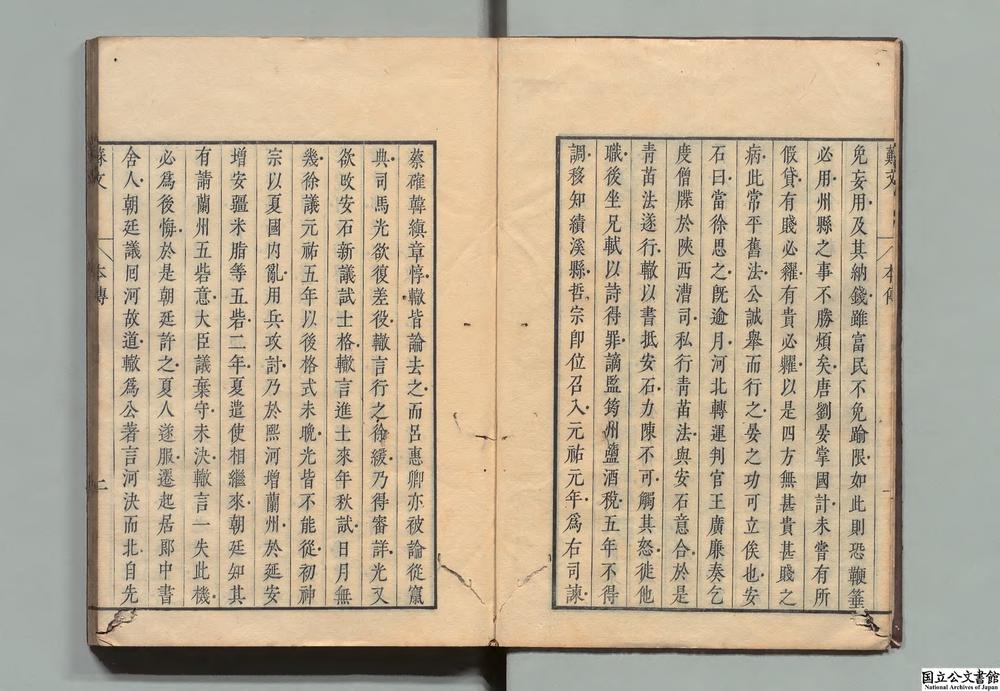 蘇文
本傳
一
免妄用及其納錢雖富民不免踰限如此則恐鞭箠
必用州縣之事不勝煩矣唐劉晏掌國計未嘗有所
假貸有賤必糴有貴必糶以是四方無甚貴甚賤之
病此常平舊法公誠舉而行之晏之功可立俟也安
石曰當徐思之旣逾月河北轉運判官王廣廉奏乞
度僧牒於陝西漕司私行青苗法與安石意合於是
青苗法遂行轍以書抵安石力陳不可觸其怒徙他
職後坐兄軾以詩得罪謫監筠州鹽酒稅五年不得
調移知績溪縣哲宗卽位召入元祐元年爲右司諫
蔡確韓縝章惇轍皆論去之而呂惠卿亦被論從竄
典司馬光欲復差役轍言行之徐緩乃得審詳光又
欲攺安石新議試士格轍言進士來年秋試日月無
幾徐議元祐五年以後格式未晚光皆不能從初神
宗以夏國內亂用兵攻討乃於熙河增蘭州於延安
增安疆米脂等五砦二年夏遣使相繼來朝廷知其
有請蘭州五砦意大臣議棄守未決轍言一失此機
必爲後悔於是朝廷許之夏人遂服遷起居郞中書
舍人朝廷議囘河故道轍爲公著言河決而北自先
蘇文
本傳
二
国立公文書館
National Archives of Japan